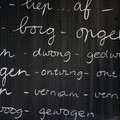 - liep ... af -
- borg - ongeb
- dwong - gedw
gen - ontving - ont
n - vernam - vern
woog - gewogen